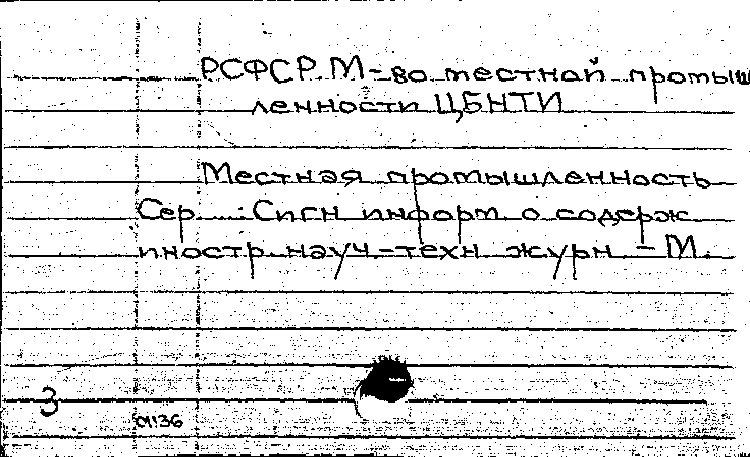 РСФСР. М-во местной промыш
ленности ЦБНТИ
Местная промышленность
Сер. : Сигн информ о содерж
иностр. науч.-техн журн - М.
3
01136